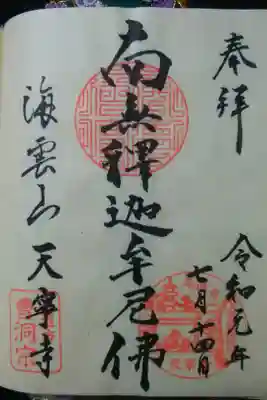 奉拜
令和元年
七月十四日
南無釋迦牟尼佛
海雲山天寧寺